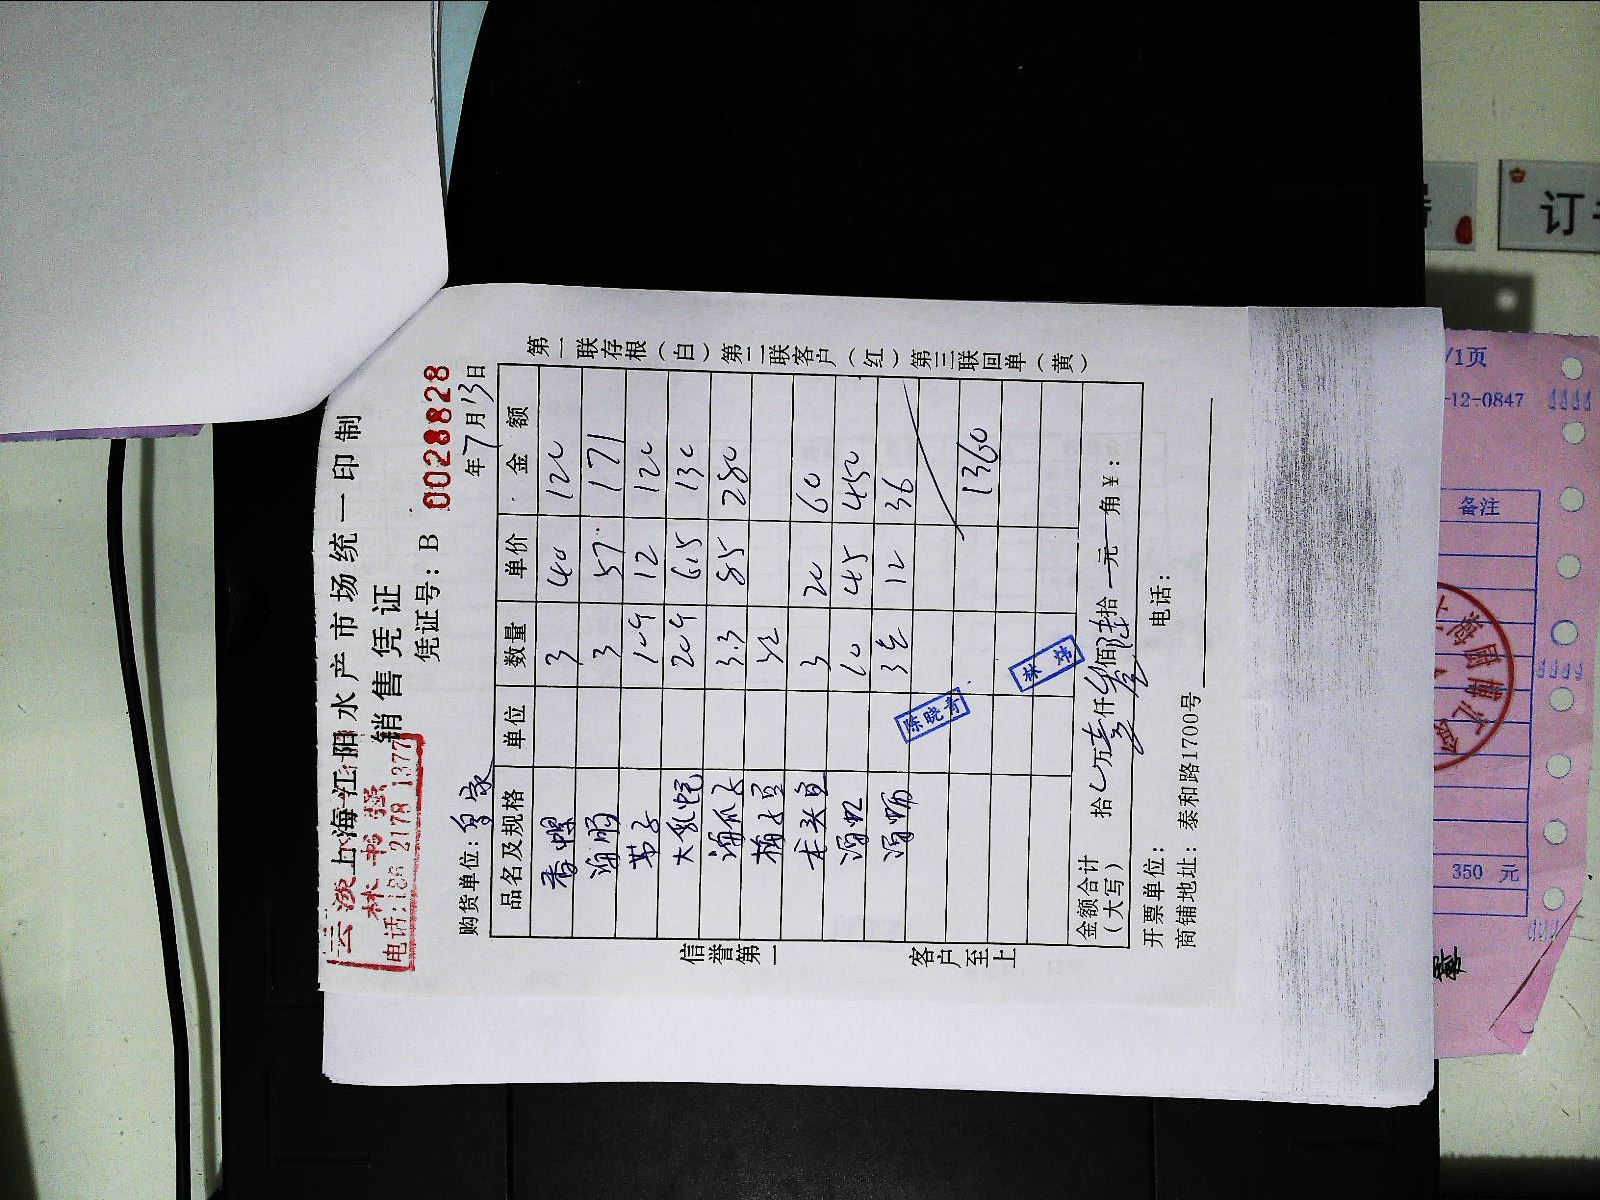 上海江阳水产市场统一印制
销售凭证
云淡
林书强
电话:186 2178 1377
凭证号: B 0028828
购货单位: 年7月13日
品名及规格 单位 数量 单价 金额
香螺 3 40 120
3 57 171
12 120
大乳蛏 6.5 130
海瓜子 3.3 85 280
梅子
3 20 60
10 45 450
海蛳 3 12 36
1360
陈晓青
林炜
金额合计
(大写) 拾 万壹仟叁佰陆拾 元 角¥:
开票单位: 电话:
商铺地址: 泰和路1700号
信誉第一 客户至上
第一联存根(白)第二联客户(红)第三联回单(黄)
订
/1页
-12-0847
备注
350 元